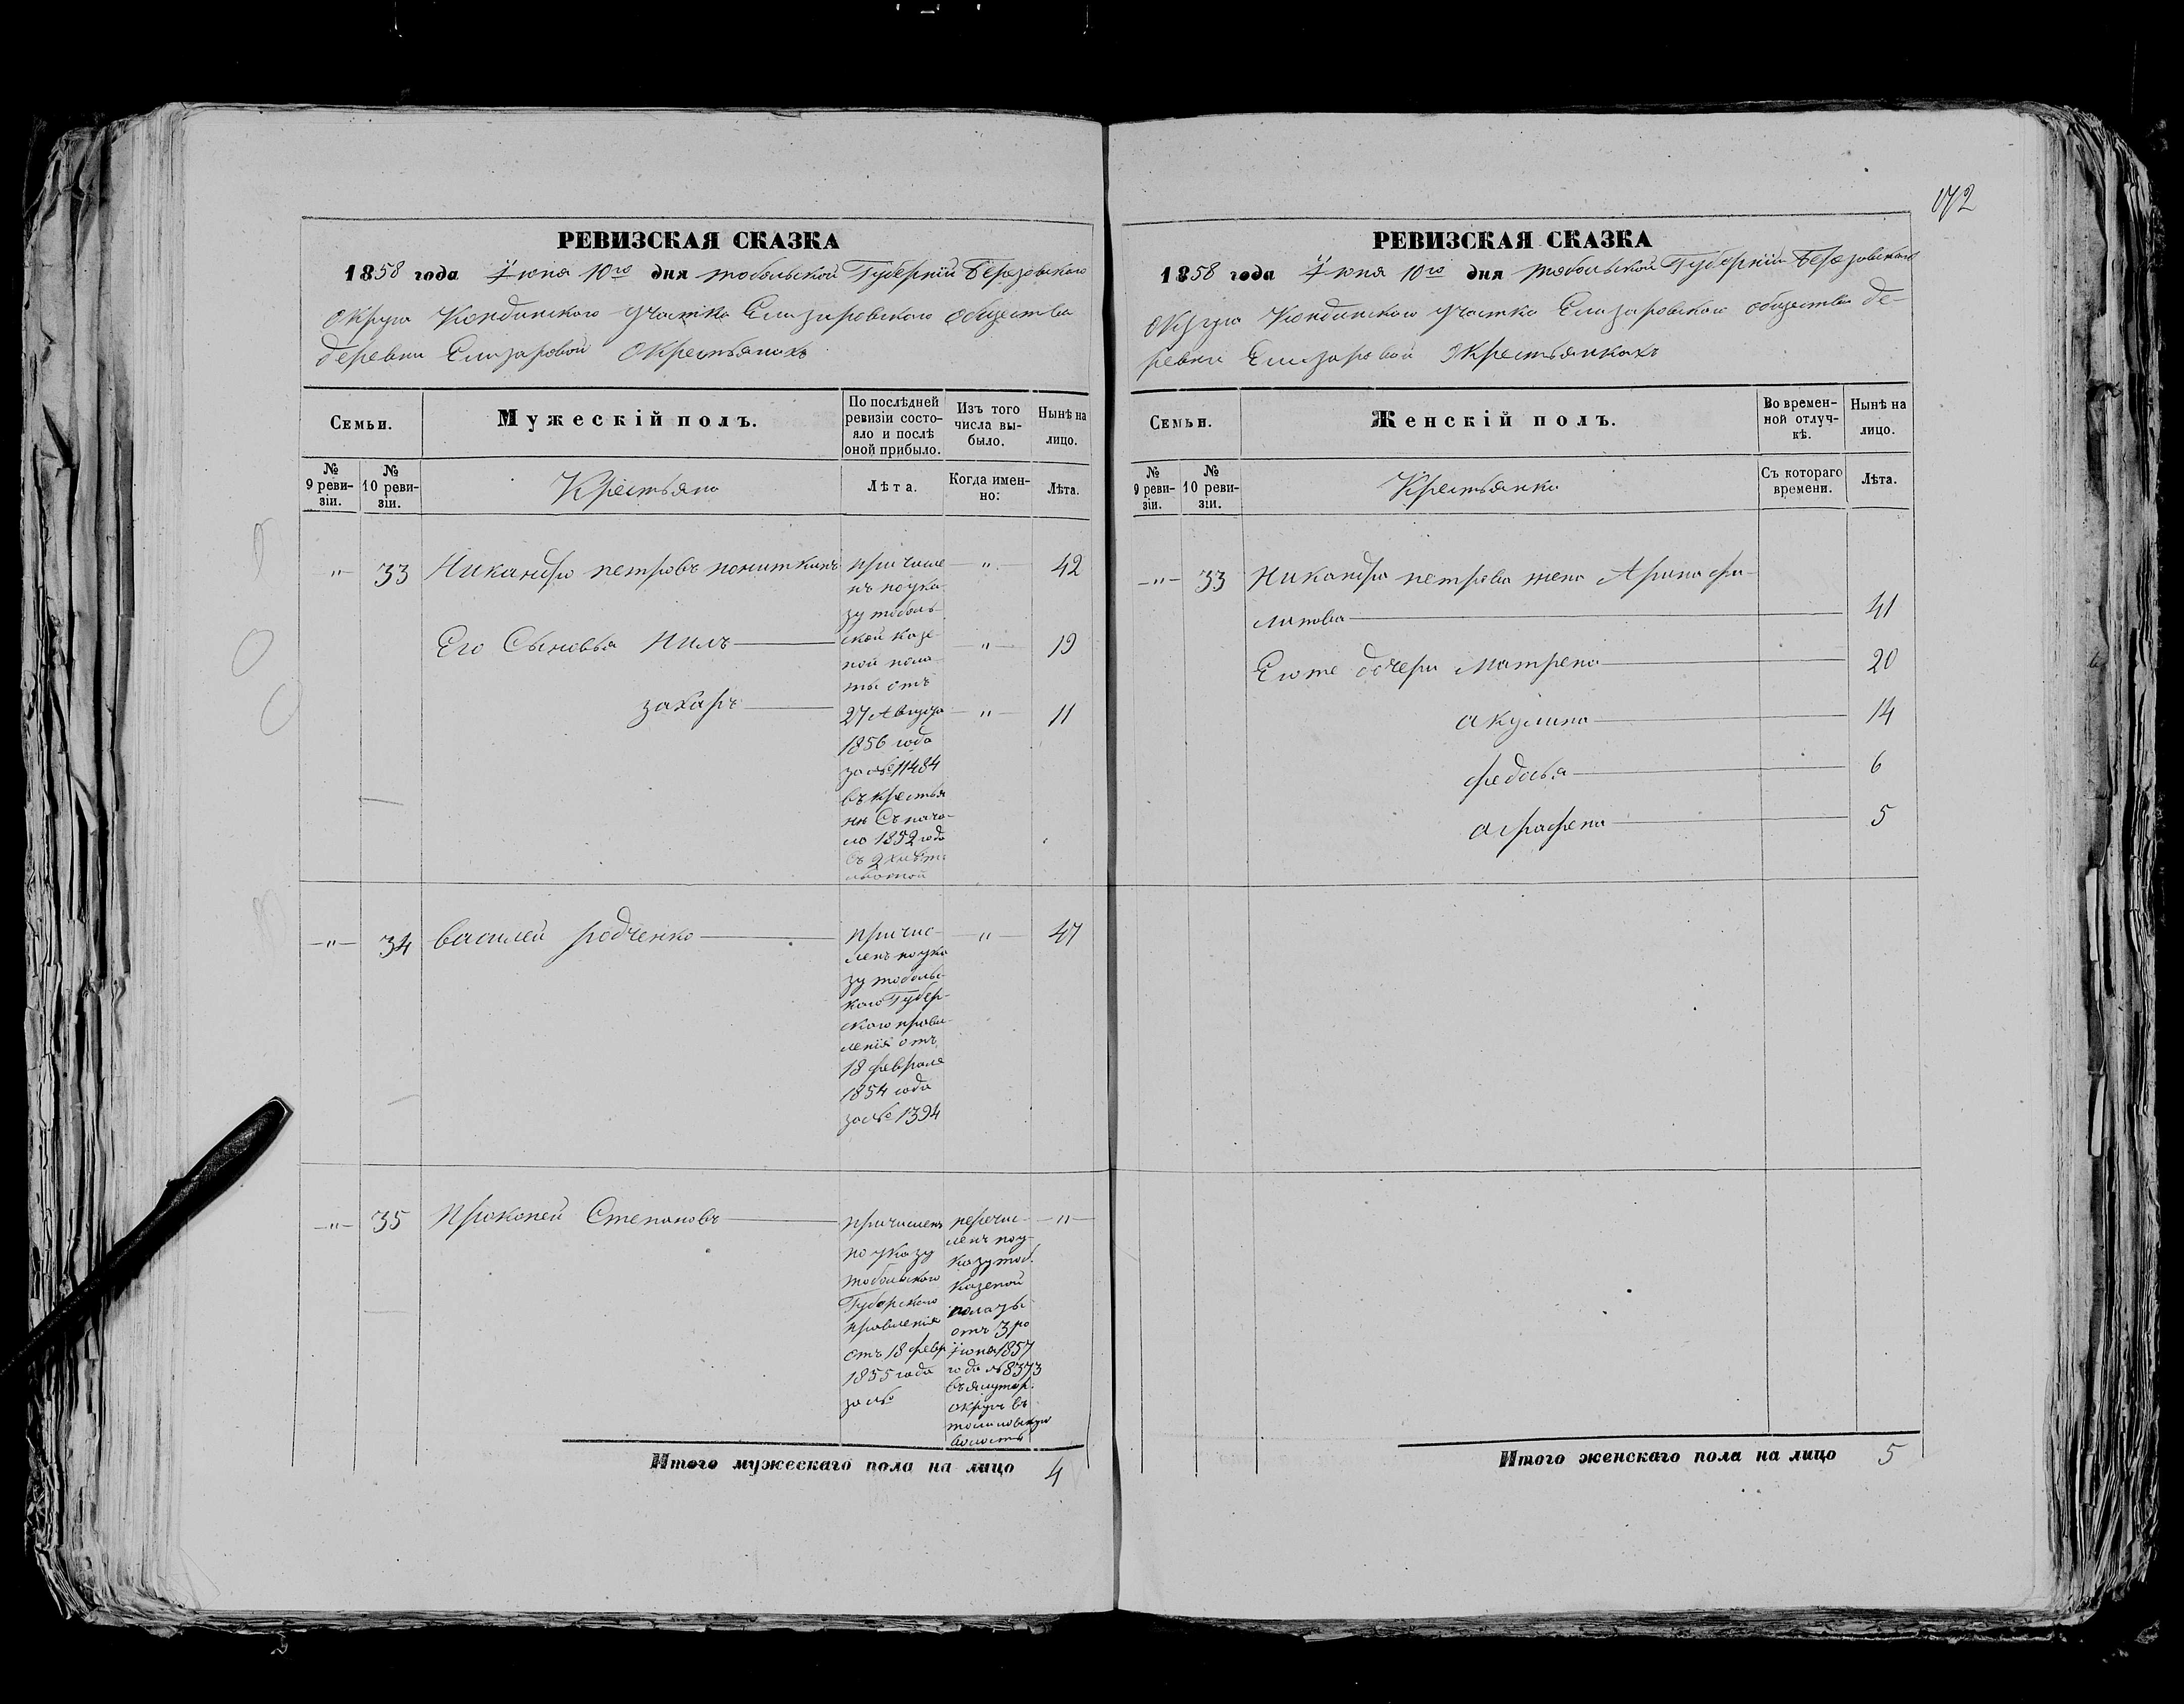 172
РЕВИЗСКАЯ СКАЗКА
1858 года Июня 10го дня тобольской Губерніи Березовского
округа Кондинского участка Елизаровского общества
деревни Елизаровой окрестьянахъ
Семьи.
Мужескій полъ.
По послѣдней
ревизіи состо-
яло и послѣ
оной прибыло.
Изъ того
числа вы-
было.
Нынѣ на
лицо.
№
9 реви-
зіи.
№
10 реви-
зіи.
Крестьяна
Лѣта.
Когда имен-
но:
Лѣта.
—"— 33 Никандра петровъ —"— 42
причисле
нъ поука
зу тоболь
ской казе
ной пала
ты отъ
27 Августа
1856 года
за № 11484
въ крестья
не Съ нача-
ла 1852 года
Его Сыновья Нилъ —"— 19
захаръ —"— 11
—"— 34 василей родченко —"— 47
причис-
ленъ поука
зу тобольс
кого Губер-
ского прав-
ленія отъ
18 февраля
1854 года
за № 1394
—"— 35 Прокопей Степановъ —"—
причисленъ
по указу
тобольского
Губерского
правленія
отъ 18 февр
1855 года
за №
перечис-
ленъ поу-
казу тоб.
казеной
палаты
отъ 3го
Іюня 1857
года № 8373
въ ялутор.
округъ въ
волость
Итого мужескаго пола на лицо 4
РЕВИЗСКАЯ СКАЗКА
1858 года Июня 10го дня тобольской Губерніи Березовского
округа Кондинского участка Елизаровского общества де-
ревни Елизаровой окрестьянкахъ
Семьи.
Женскій полъ.
Во времен-
ной отлуч-
кѣ.
Нынѣ на
лицо.
№
9 реви-
зіи.
№
10 реви-
зіи.
Крестьянки
Съ котораго
времени.
Лѣта.
—"— 33 Никандра петрова жена Арина фи-
липова 41
Егоже дочери Матрена 20
акулина 14
федосья 6
аграфена 5
Итого женскаго пола на лицо 5